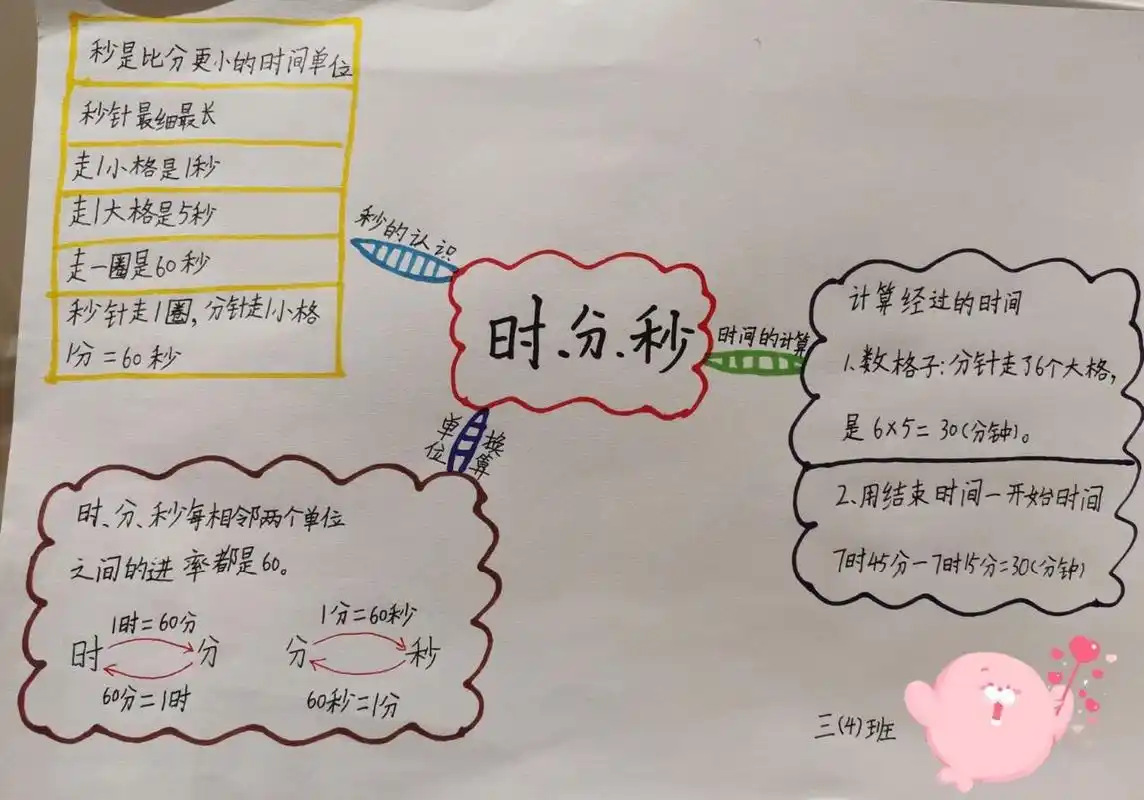 秒是比分更小的时间单位
秒针最细最长
走1小格是1秒
走1大格是5秒
走一圈是60秒
秒针走1圈,分针走1小格
1分=60秒
秒的认识
时、分、秒
时间的计算
计算经过的时间
1、数格子:分针走了6个大格,
是6×5=30(分钟)。
2、用结束时间-开始时间
7时45分-7时15分=30(分钟)
单位
换算
时、分、秒每相邻两个单位
之间的进率都是60。
1时=60分
时 分
60分=1时
1分=60秒
分 秒
60秒=1分
三(4)班